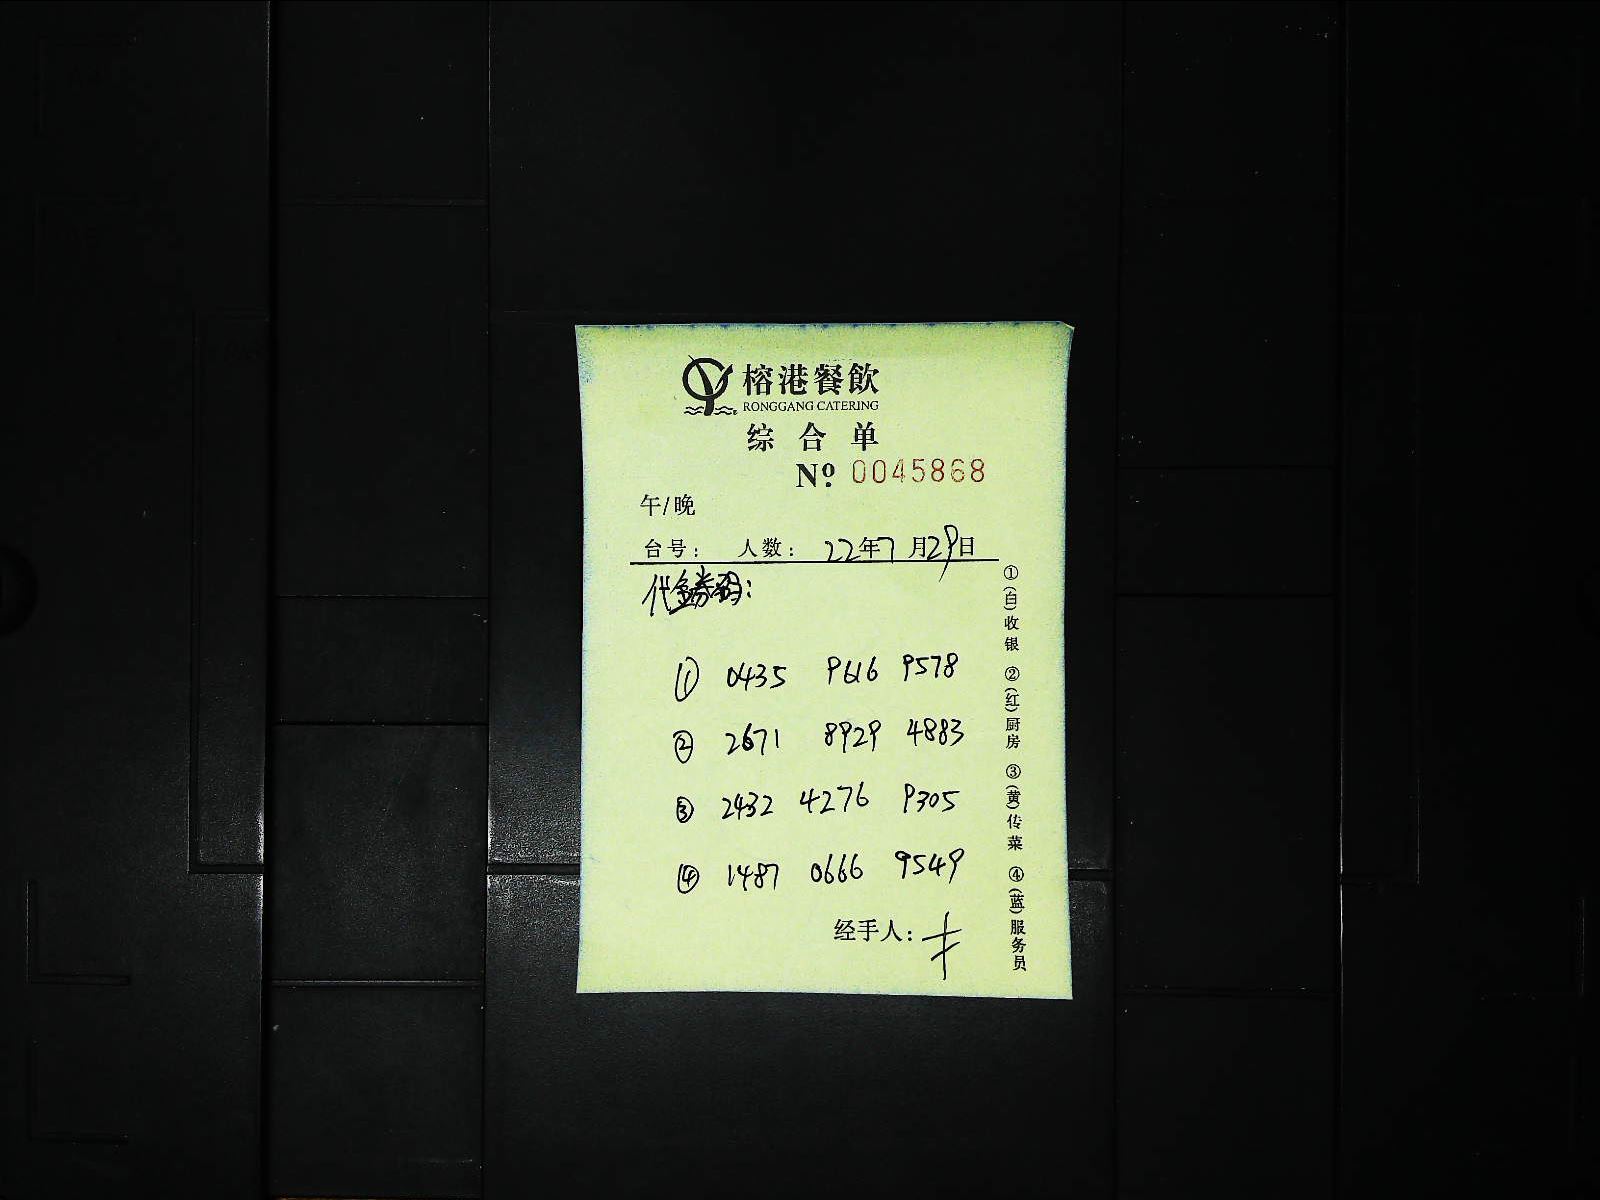 榕港餐飲
RONGGANG CATERING
综合单
Nº 0045868
午/晚
台号: 人数: 22年7月29日
代金券码:
① 0435 9616 9578
② 2671 8929 4883
③ 2432 4276 9305
④ 1487 0666 9549
经手人:
①(白)收银 ②(红)厨房 ③(黄)传菜 ④(蓝)服务员